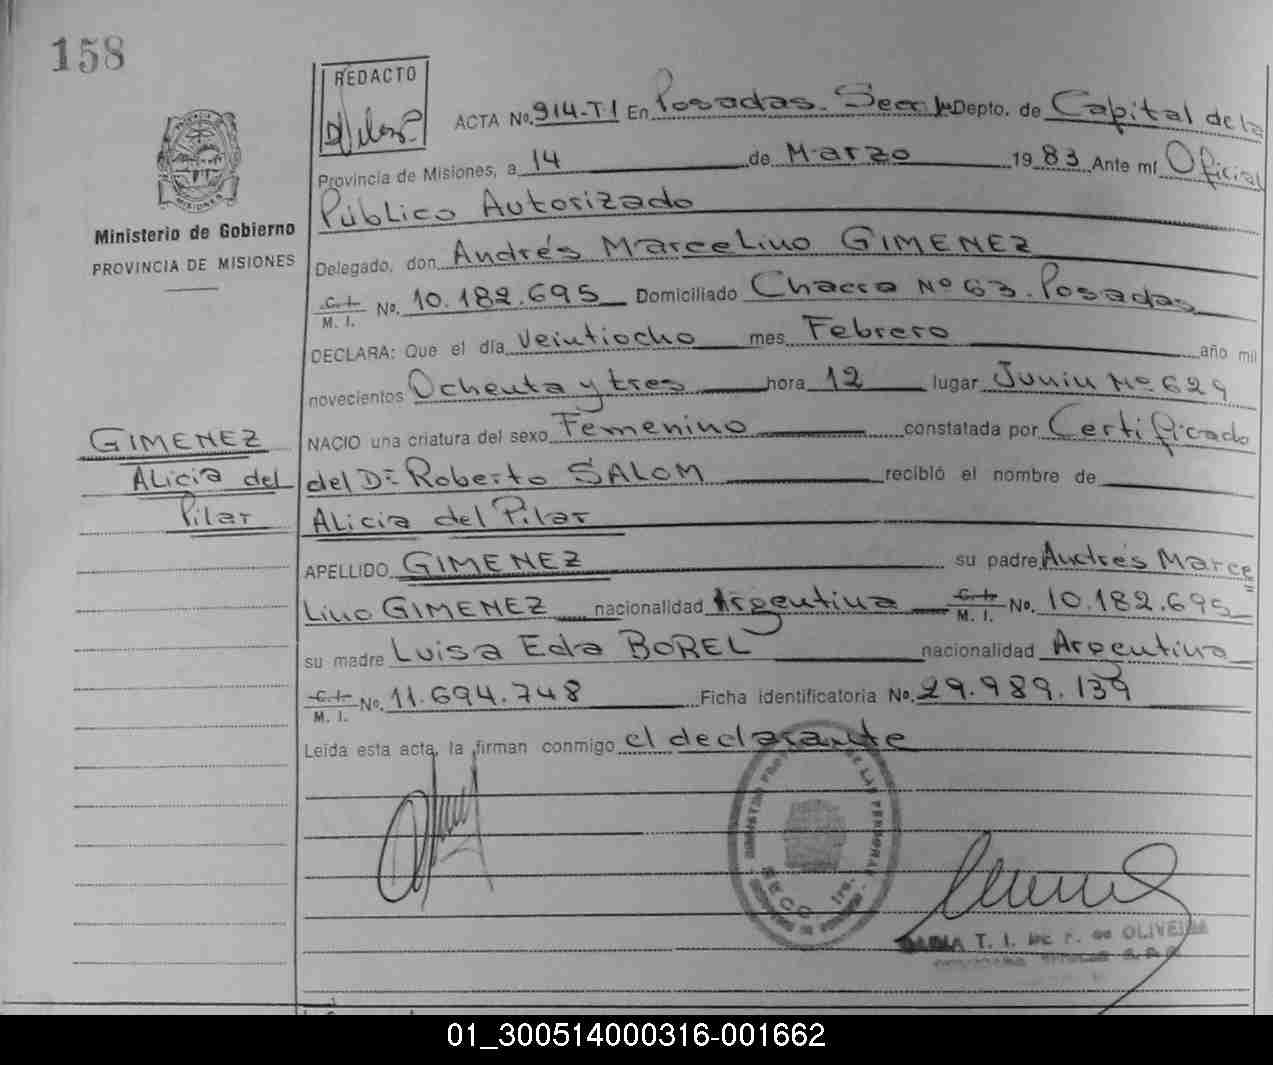 158
REDACTO
ACTA No. 914-T1 En Posadas. Secc 1ra Depto. de Capital de la
Provincia de Misiones, a 14 de Marzo 1983 Ante mí Oficial
Público Autorizado
Ministerio de Gobierno
PROVINCIA DE MISIONES
Delegado, don Andrés Marcelino GIMENEZ
C. I.
M. I. No. 10.182.695 Domiciliado Chacra Nº 63. Posadas
DECLARA: Que el día Veintiocho mes Febrero año mil
novecientos Ochenta y tres hora 12 lugar Junin Nº 629
GIMENEZ
Alicia del
Pilar
NACIO una criatura del sexo Femenino constatada por Certificado
del Dr Roberto SALOM recibió el nombre de
Alicia del Pilar
APELLIDO GIMENEZ su padre Andrés Marce
lino GIMENEZ nacionalidad Argentina C. I.
M. I. No. 10.182.695
su madre Luisa Eda BOREL nacionalidad Argentina
C. I.
M. I. No. 11.694.748 Ficha identificatoria No. 29.989.139
Leída esta acta, la firman conmigo el declarante
DE LAS PERSONAS
SECC. 1ra.
T. I. DE F. de OLIVEIRA
01_300514000316-001662